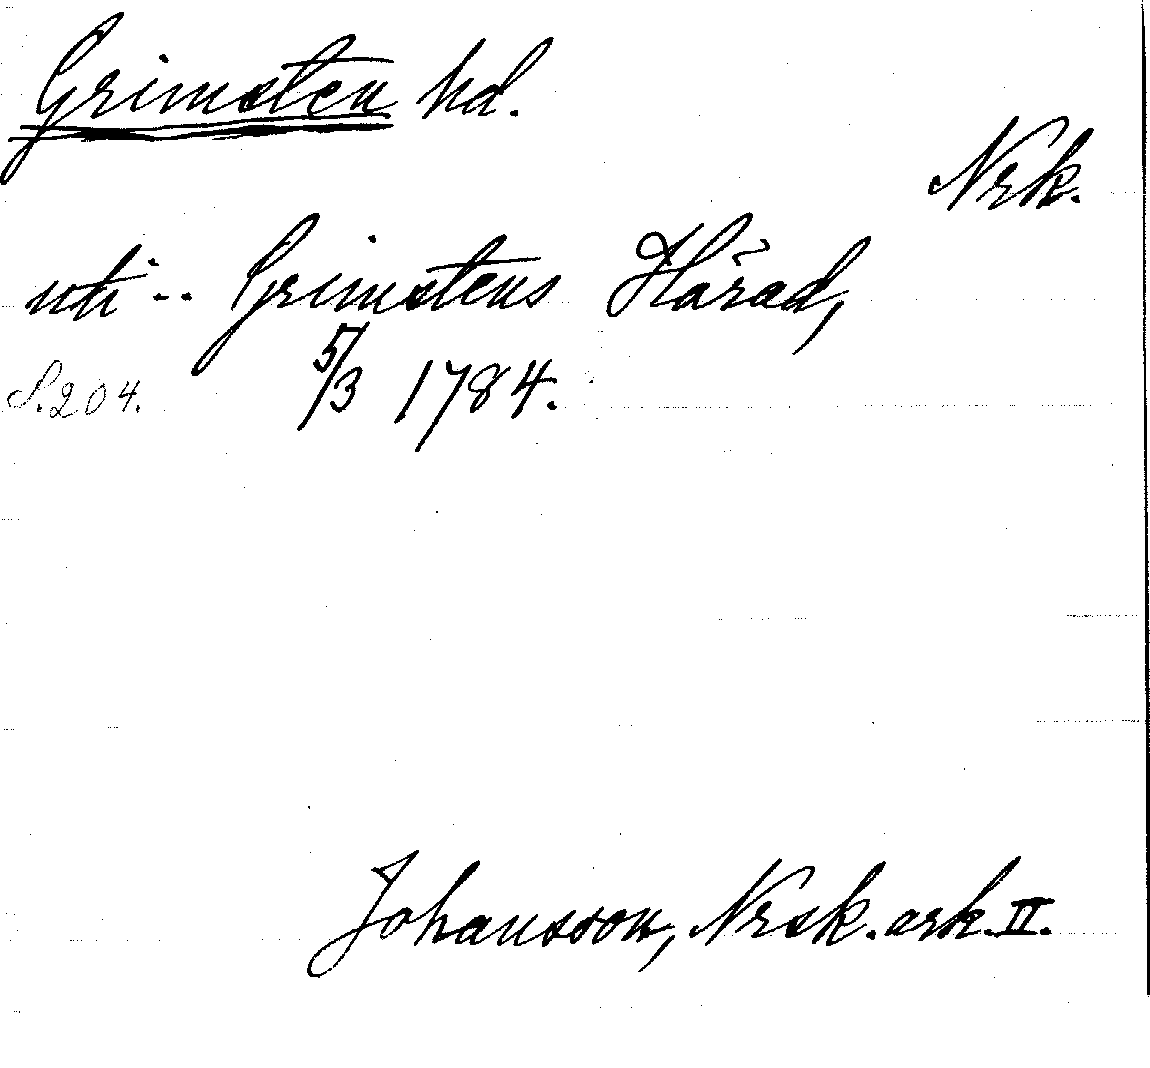 Grimsten hd.
Nrk.
uti -- Grimstens Härad,
S. 204. 5/3 1784.
Johansson, Nrsk. ark. II.